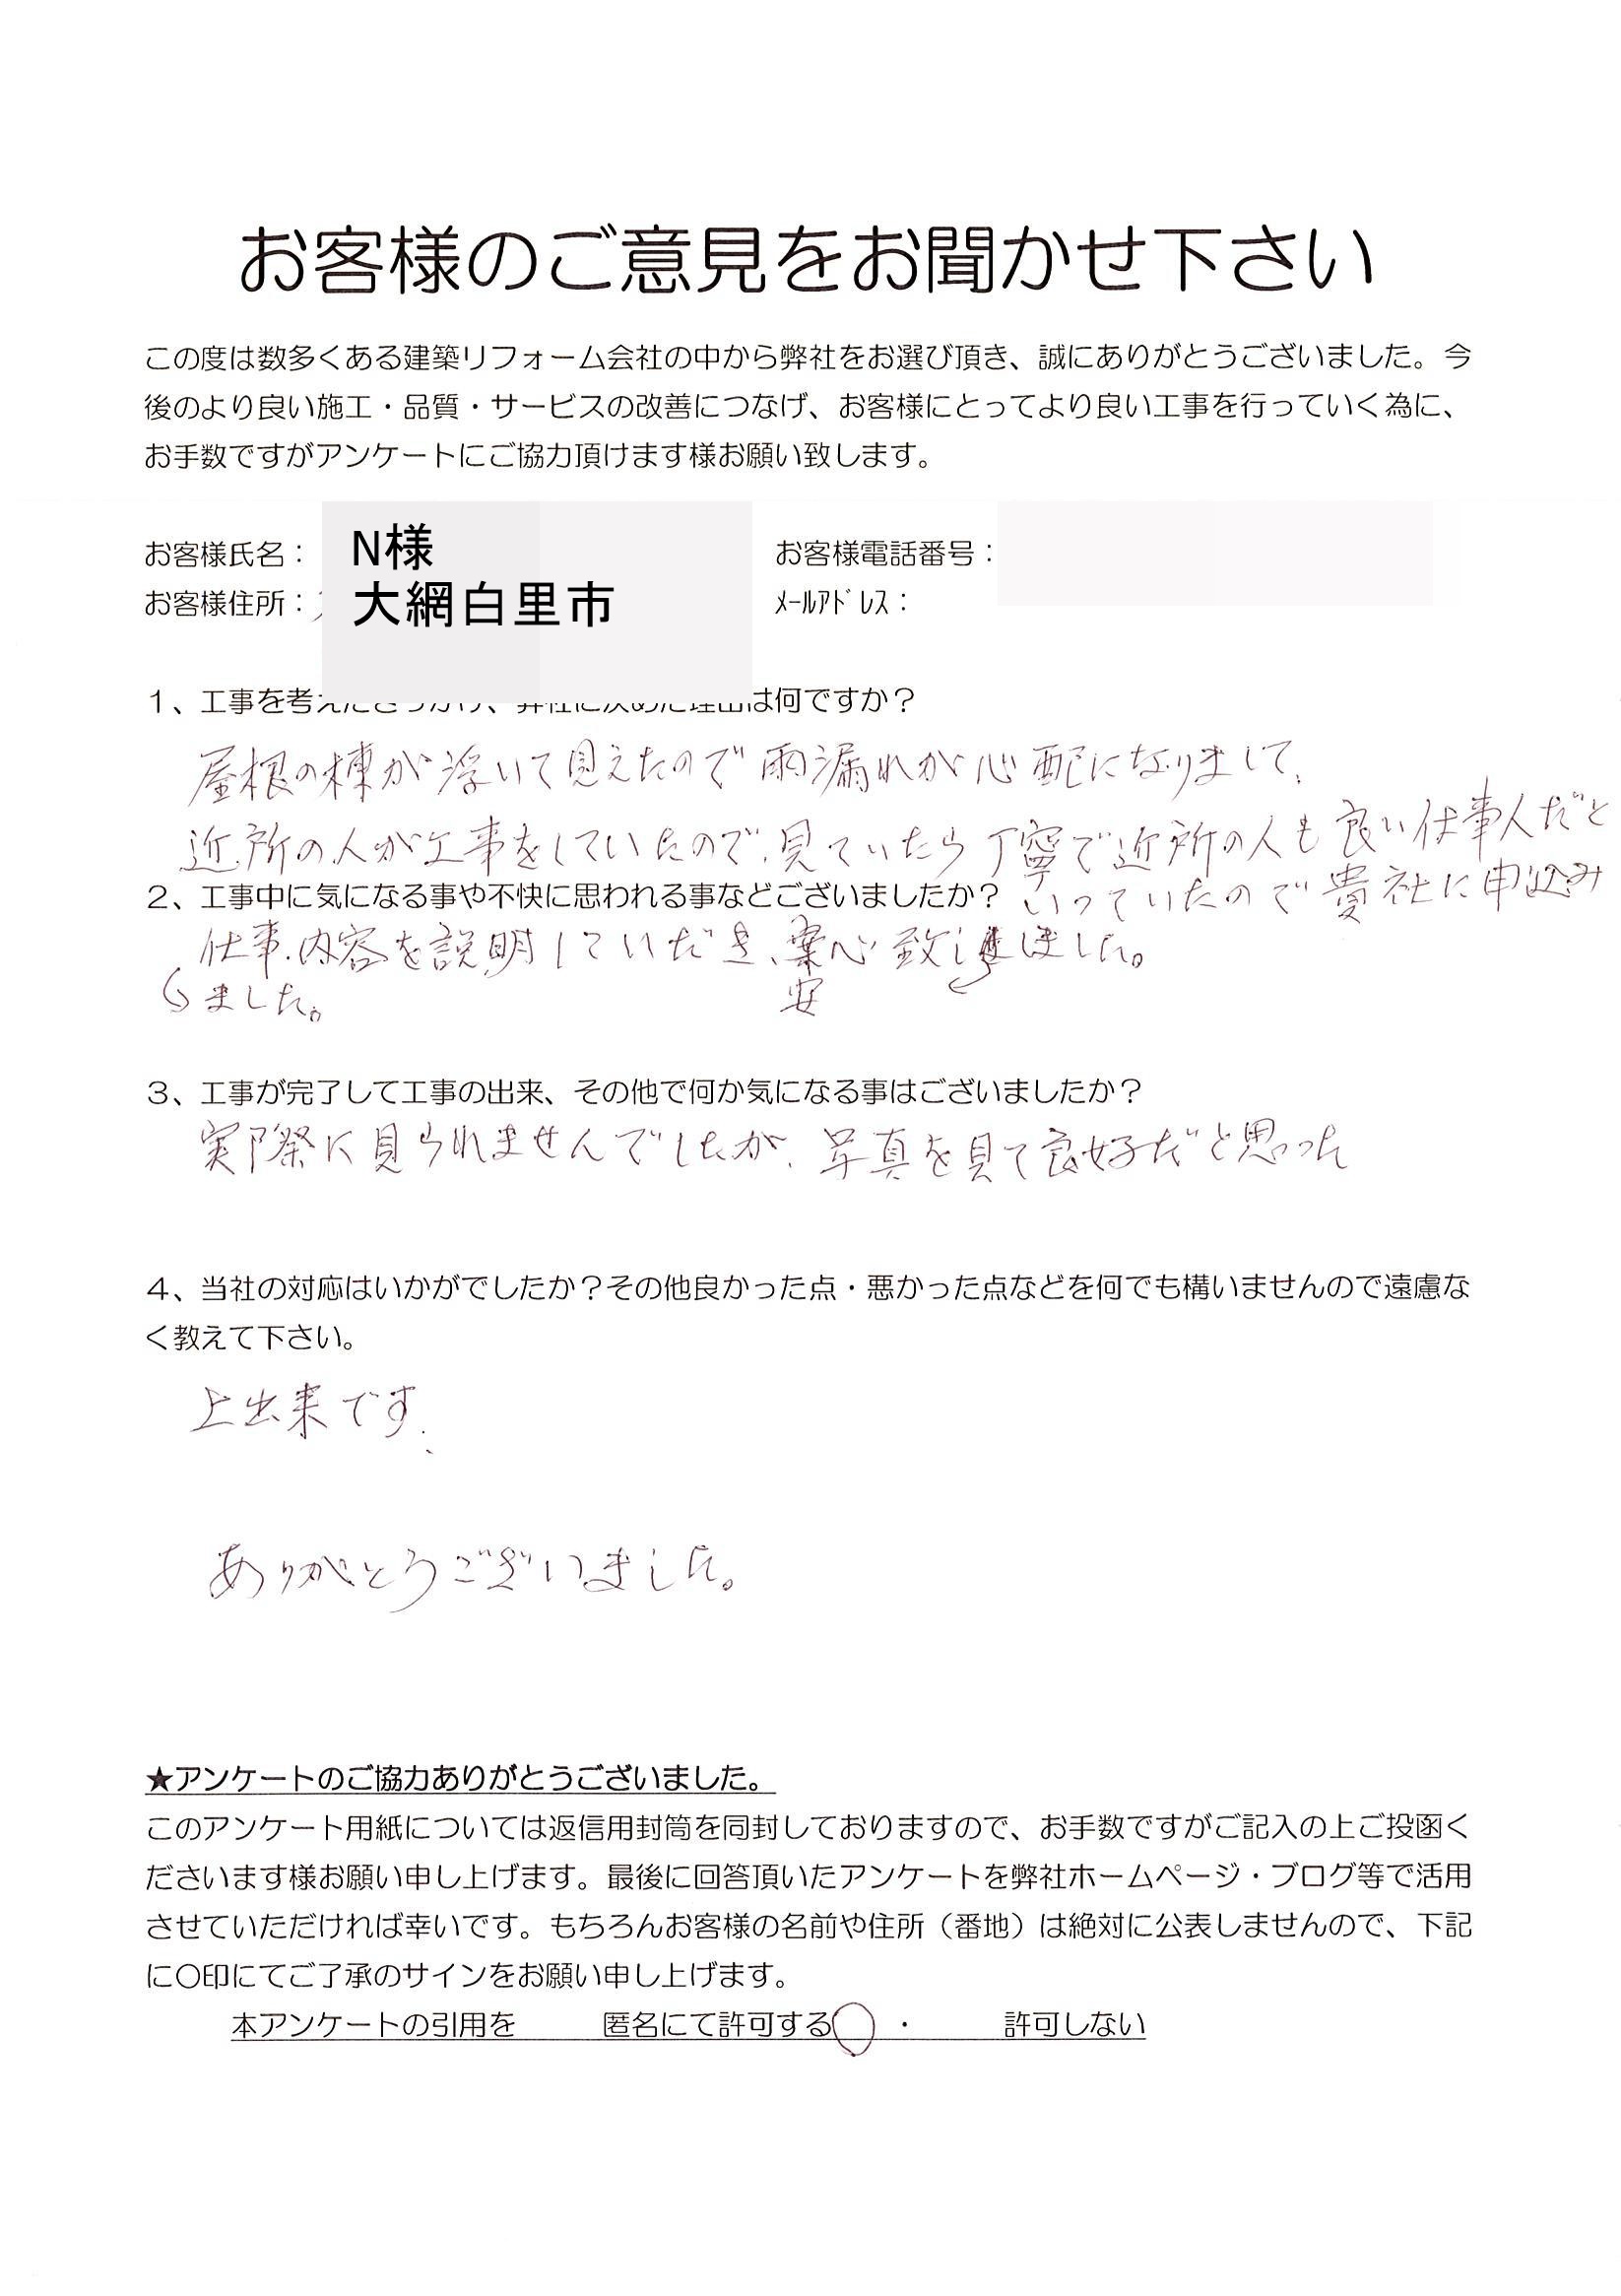 お客様のご意見をお聞かせ下さい
この度は数多くある建築リフォーム会社の中から弊社をお選び頂き、誠にありがとうございました。今
後のより良い施工・品質・サービスの改善につなげ、お客様にとってより良い工事を行っていく為に、
お手数ですがアンケートにご協力頂けます様お願い致します。
お客様氏名： N様 お客様電話番号：
お客様住所： 大網白里市 ﾒｰﾙｱﾄﾞﾚｽ：
１、工事を考えたきっかけ、弊社に決めた理由は何ですか？
屋根の棟が浮いて見えたので雨漏れが心配になりまして、
近所の人が工事をしていたので、見ていたら丁寧で近所の人も良い仕事人だと
いっていたので貴社に申込み
ました。
２、工事中に気になる事や不快に思われる事などございましたか？
仕事内容を説明していだき、安心致しました。
３、工事が完了して工事の出来、その他で何か気になる事はございましたか？
実際に見られませんでしたが、写真を見て良好だと思った
４、当社の対応はいかがでしたか？その他良かった点・悪かった点などを何でも構いませんので遠慮な
く教えて下さい。
上出来です、
ありがとうございました。
★アンケートのご協力ありがとうございました。
このアンケート用紙については返信用封筒を同封しておりますので、お手数ですがご記入の上ご投函く
ださいます様お願い申し上げます。最後に回答頂いたアンケートを弊社ホームページ・ブログ等で活用
させていただければ幸いです。もちろんお客様の名前や住所（番地）は絶対に公表しませんので、下記
に〇印にてご了承のサインをお願い申し上げます。
本アンケートの引用を 匿名にて許可する ・ 許可しない